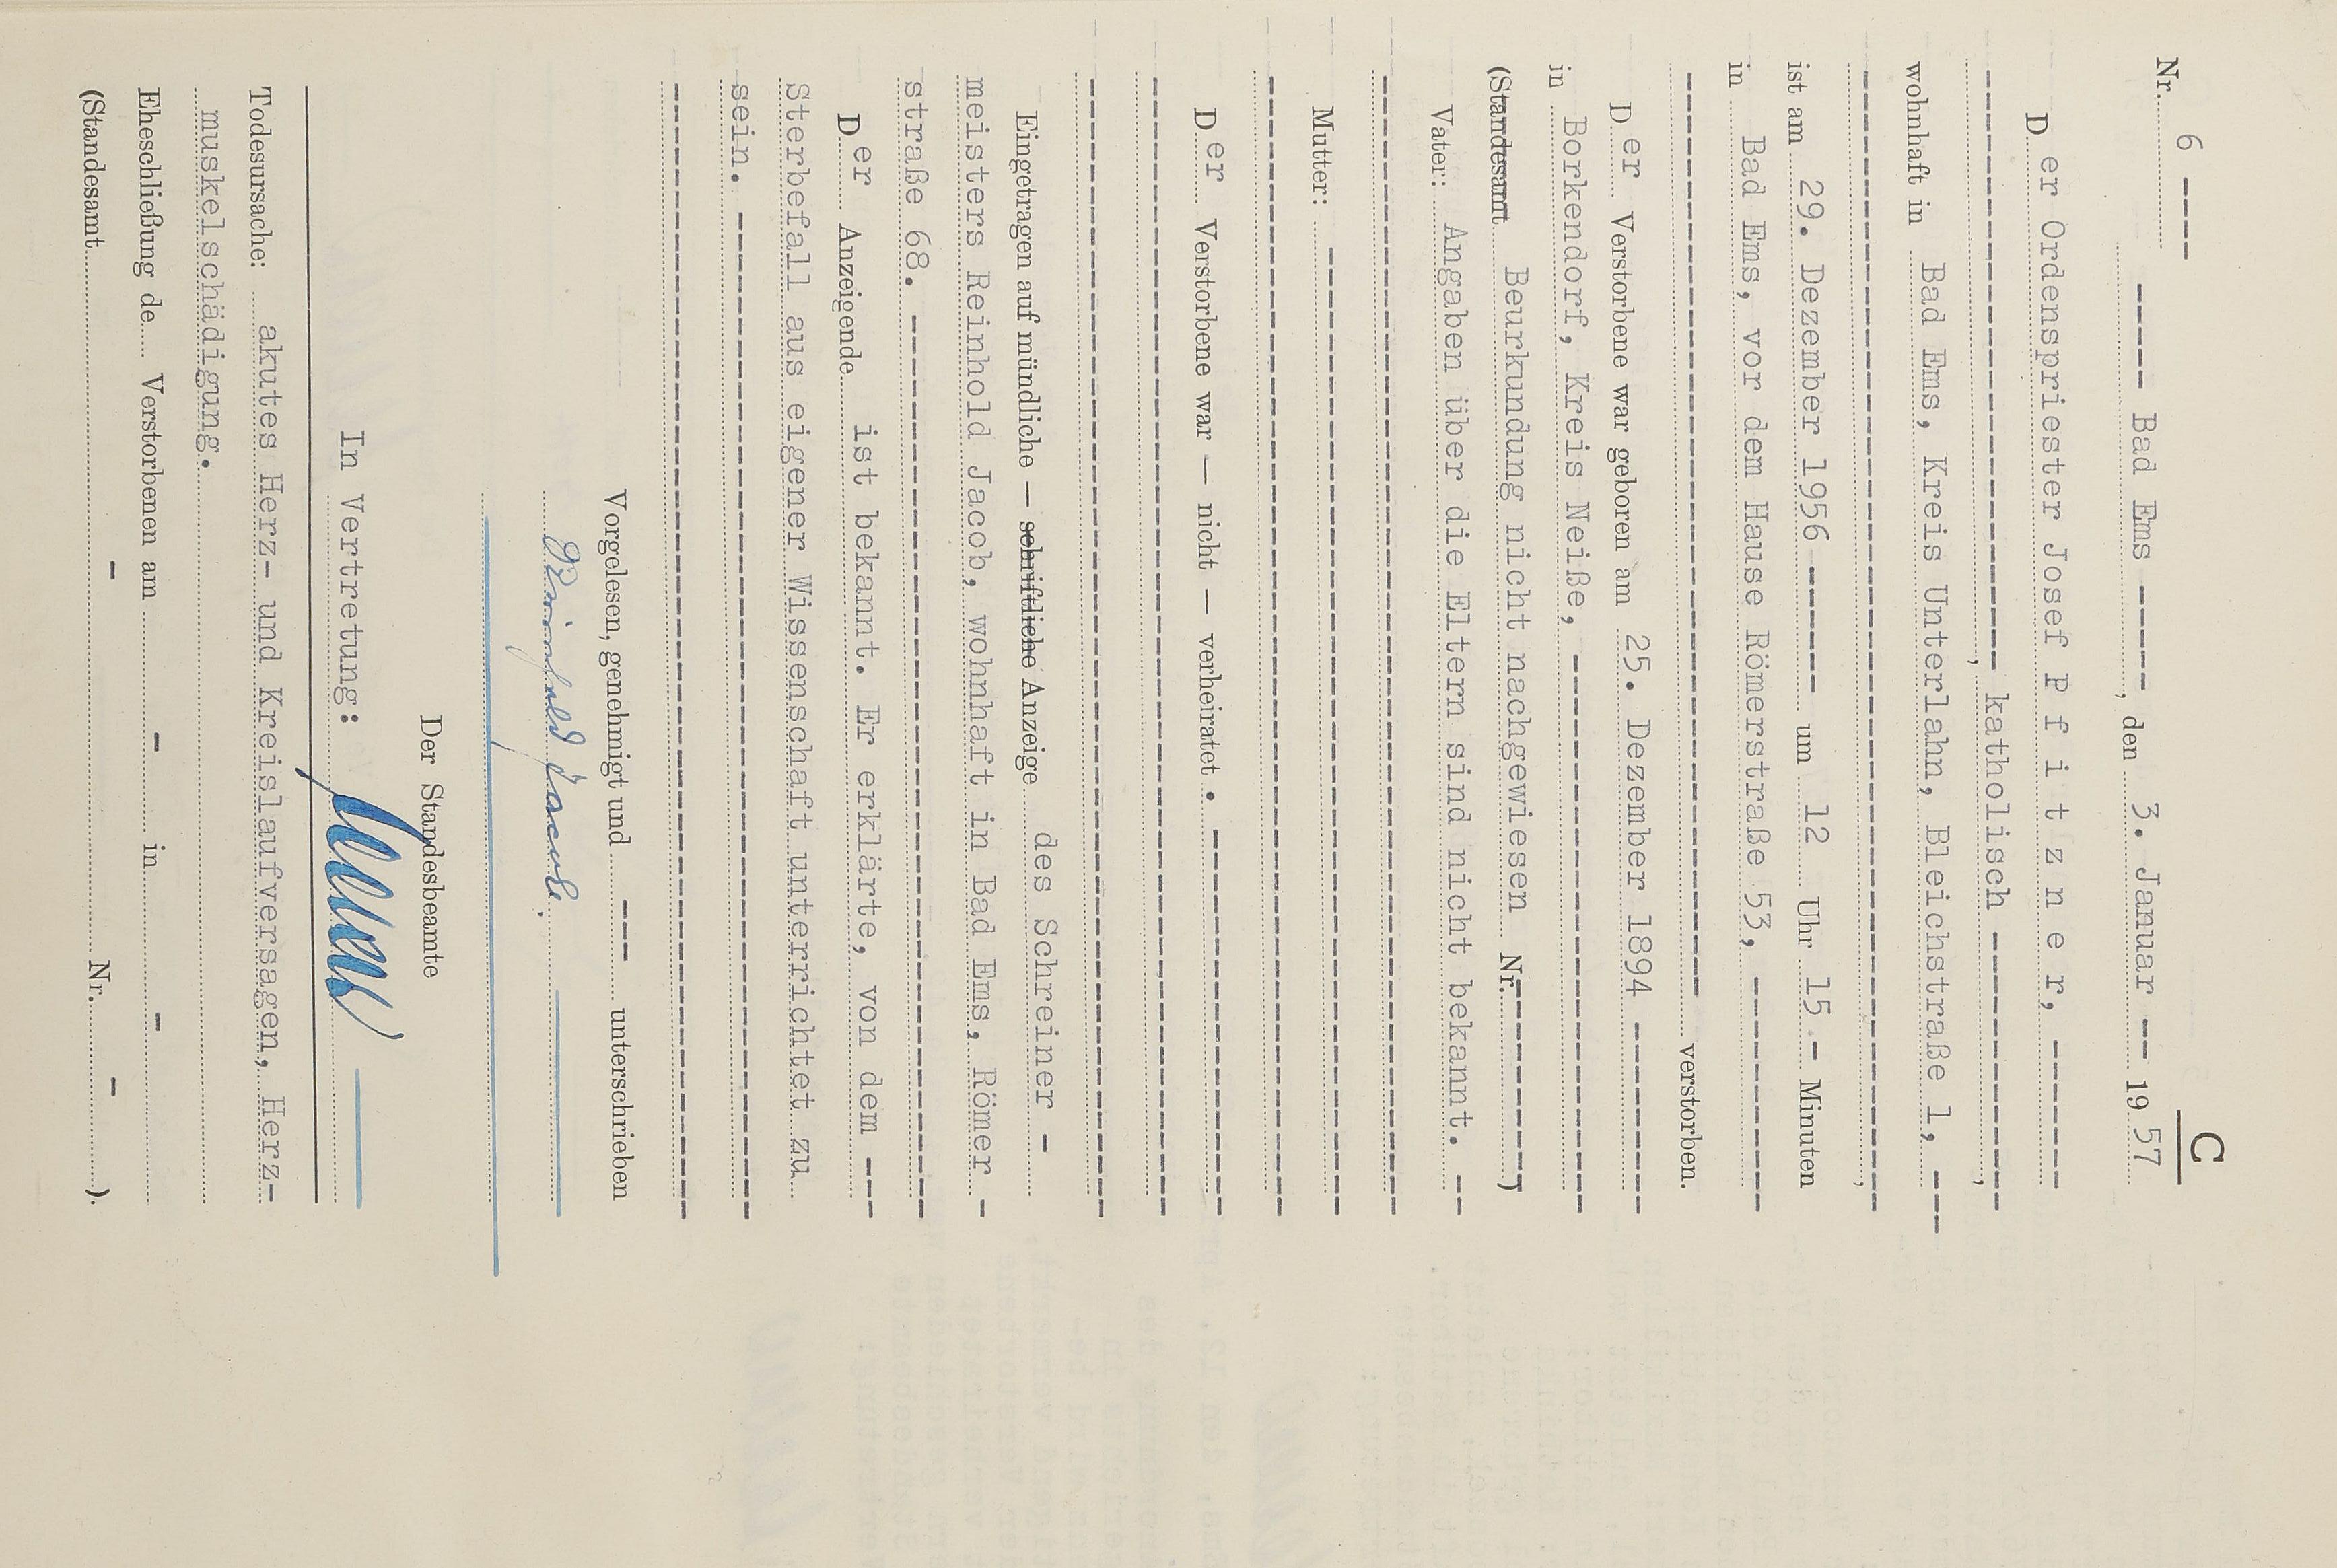 C
Nr. 6 ----
----- Bad Ems -----, den 3. Januar -- 1957
Der Ordenspriester Josef P f i t z n e r, -------
------------------------------, katholisch -------------,
wohnhaft in Bad Ems, Kreis Unterlahn, Bleichstraße 1, ---
------------------------------------------------------,
ist am 29. Dezember 1956 ------ um 12 Uhr 15 - Minuten
in Bad Ems, vor dem Hause Römerstraße 53, -----------
--------------------------------------------- verstorben.
Der Verstorbene war geboren am 25. Dezember 1894 --------
in Borkendorf, Kreis Neiße, ---------------------------
(Standesamt Beurkundung nicht nachgewiesen Nr.----------)
Vater: Angaben über die Eltern sind nicht bekannt. --
------------------------------------------------------
Mutter: ----------------------------------------------
------------------------------------------------------
Der Verstorbene war — nicht — verheiratet . -----------------
------------------------------------------------------
------------------------------------------------------
Eingetragen auf mündliche — schriftliche Anzeige des Schreiner -
meisters Reinhold Jacob, wohnhaft in Bad Ems, Römer -
straße 68. -------------------------------------------
Der Anzeigende ist bekannt. Er erklärte, von dem ---
Sterbefall aus eigener Wissenschaft unterrichtet zu
sein. ------------------------------------------------
------------------------------------------------------
Vorgelesen, genehmigt und --- unterschrieben
Reinhold Jacob.
Der Standesbeamte
In Vertretung:
Todesursache: akutes Herz- und Kreislaufversagen, Herz-
muskelschädigung.
Eheschließung de... Verstorbenen am - in -
(Standesamt - Nr. - ).